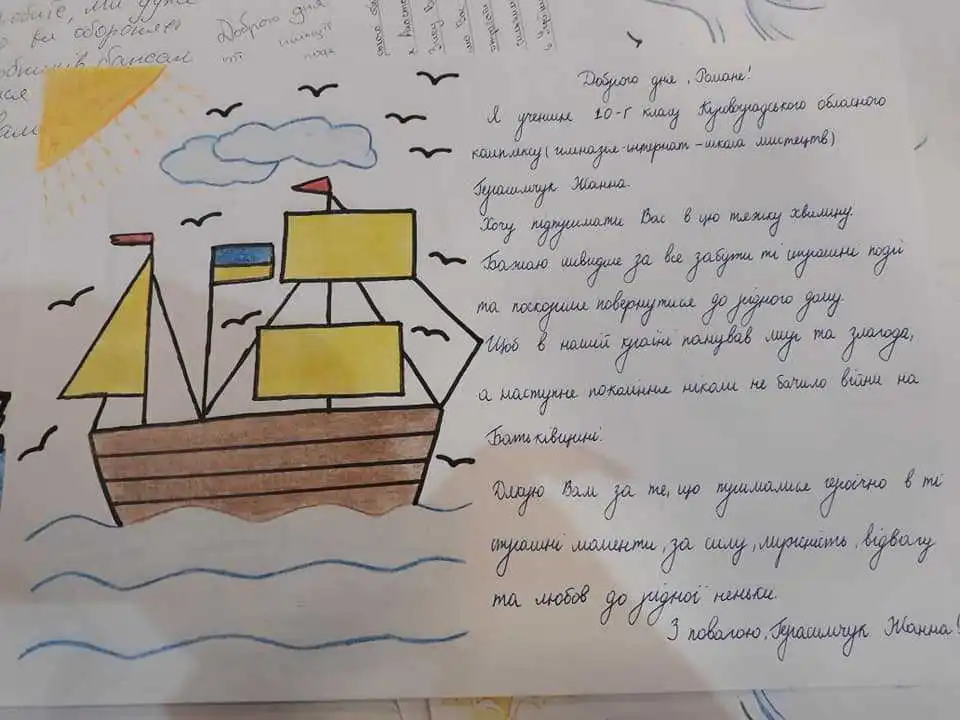 обите, ми дуже
ви обороняє
Доброго дня
Доброго дня, Романе!
Я учениця 10-Г класу Кіровоградського обласного
комплексу (гімназія-інтернат-школа мистецтв)
Герасимчук Жанна.
Хочу підтримати Вас в цю тяжку хвилину.
Бажаю швидше за все забути ті страшні події
та поскоріше повернутися до рідного дому.
Щоб в нашій країні панував мир та злагода,
а наступне покоління ніколи не бачило війни на
Батьківщині.
Дякую Вам за те, що трималися героїчно в ті
страшні моменти, за силу, мужність, відвагу
та любов до рідної неньки.
З повагою, Герасимчук Жанна!